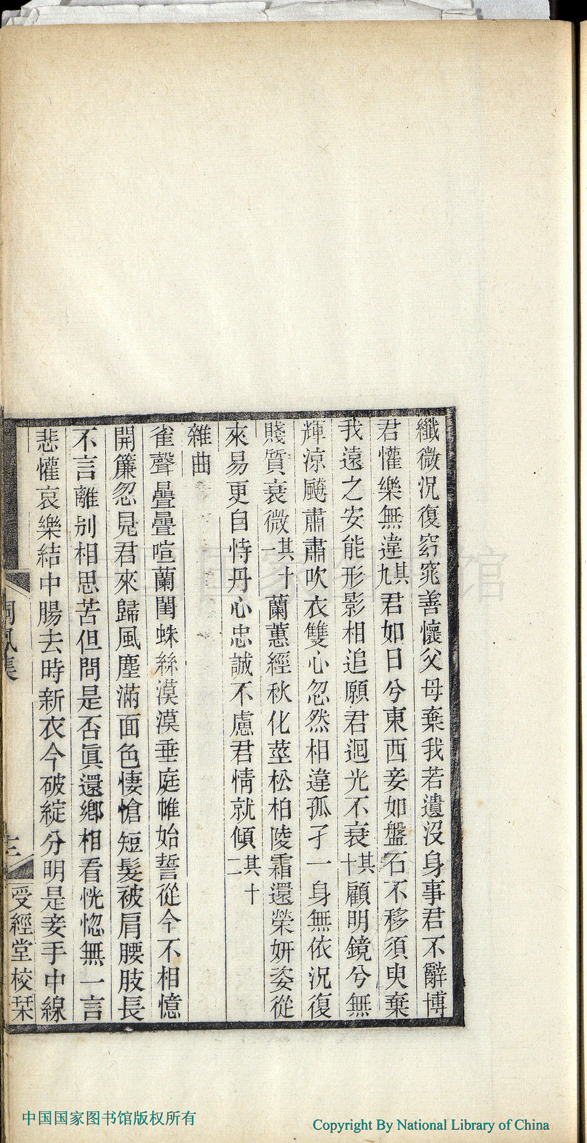 纖微況復窈窕善懷父母棄我若遺沒身事君不辭博
君懽樂無違其九君如日兮東西妾如盤石不移須臾棄
我遠之安能形影相追願君迴光不衰其十顧明鏡兮無
輝涼飈肅肅吹衣雙心忽然相違孤孑一身無依況復
賤質衰微其十一蘭蕙經秋化莖松柏陵霜還榮妍姿從
來易更自恃丹心忠誠不慮君情就傾其十二
雜曲
雀聲疊疊喧蘭閨蛛絲漠漠垂庭帷始誓從今不相憶
開簾忽見君來歸風塵滿面色悽愴短髮被肩腰肢長
不言離別相思苦但問是否眞還鄉相看恍惚無一言
悲懽哀樂結中腸去時新衣今破綻分明是妾手中線
風集
受經堂校栞
中国国家图书馆版权所有
Copyright By National Library of China